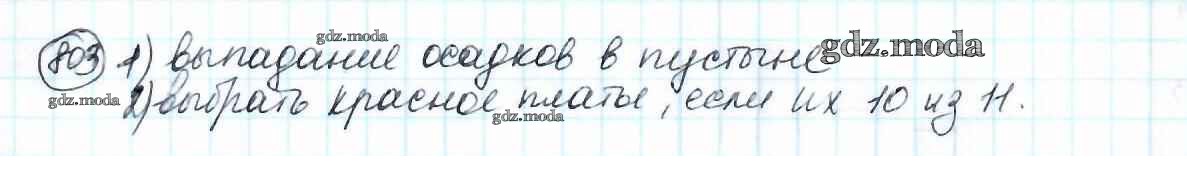 803 1) выпадание осадков в пустыне
2) выбрать красное платье, если их 10 из 11.
gdz.moda
gdz.moda
gdz.moda
gdz.moda